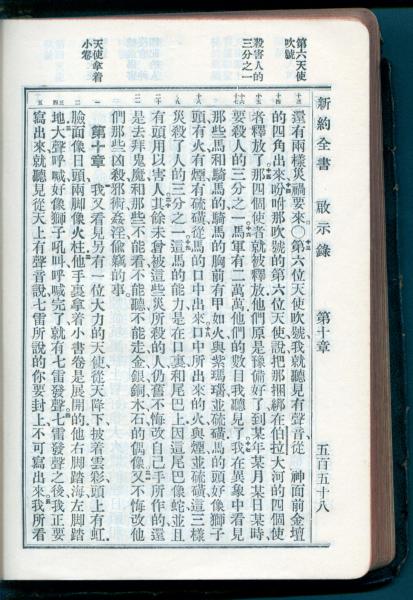 新約全書　啟示錄　第十章　五百五十八
第六天使
吹號
殺害人的
三分之一
天使拿着
小卷
還有兩樣災禍要來〇第六位天使吹號我就聽見有聲音從　神面前金壇
的四角出來吩咐那吹號的第六位天使說把那捆綁在伯拉大河的四個使
者釋放了那四個使者就被釋放他們原是豫備好了到某年某月某日某時
要殺人的三分之一馬軍有二萬萬他們的數目我聽見了我在異象中看見
那些馬和騎馬的騎馬的胸前有甲如火與紫瑪瑙並硫磺馬的頭好像獅子
頭有火有煙有硫磺從馬的口中出來口中所出來的火與煙並硫磺這三樣
災殺了人的三分之一這馬的能力是在口裏和尾巴上因這尾巴像蛇並且
有頭用以害人其餘未曾被這些災所殺的人仍舊不悔改自己手所作的還
是去拜鬼魔和那些不能看不能聽不能走金銀銅木石的偶像又不悔改他
們那些凶殺邪術姦淫偷竊的事
第十章　我又看見另有一位大力的天使從天降下披着雲彩頭上有虹
臉面像日頭兩脚像火柱他手裏拿着小書卷是展開的他右脚踏海左脚踏
地大聲呼喊好像獅子吼叫呼喊完了就有七雷發聲七雷發聲之後我正要
寫出來就聽見從天上有聲音說七雷所說的你要封上不可寫出來我所看